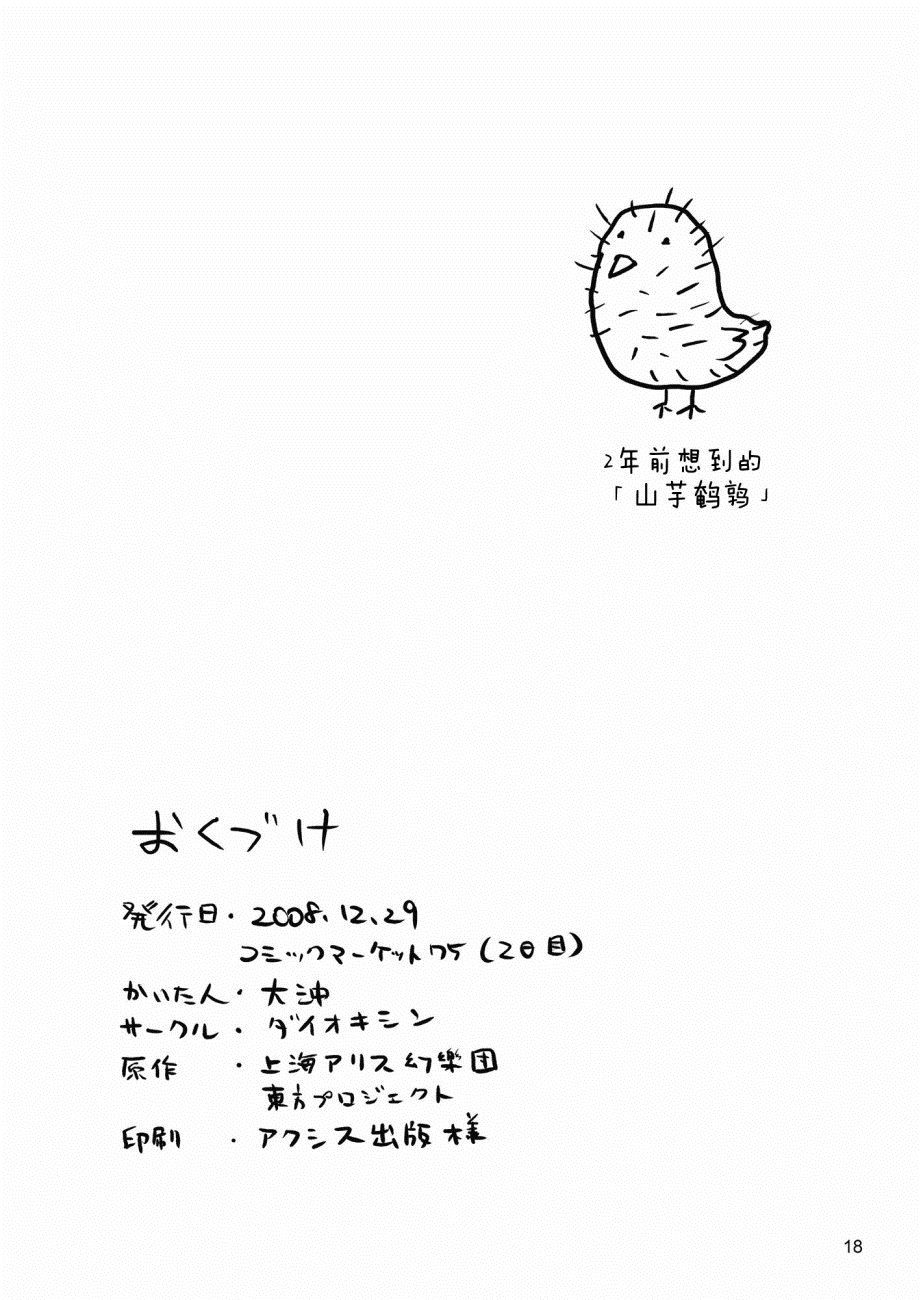 2年前想到的
「山芋鹌鹑」
おくづけ
発行日・2008.12.29
コミックマーケット75(2日目)
かいた人・大沖
サークル・ダイオキシン
原作・上海アリス幻樂団
東方プロジェクト
印刷・アクシス出版様
18